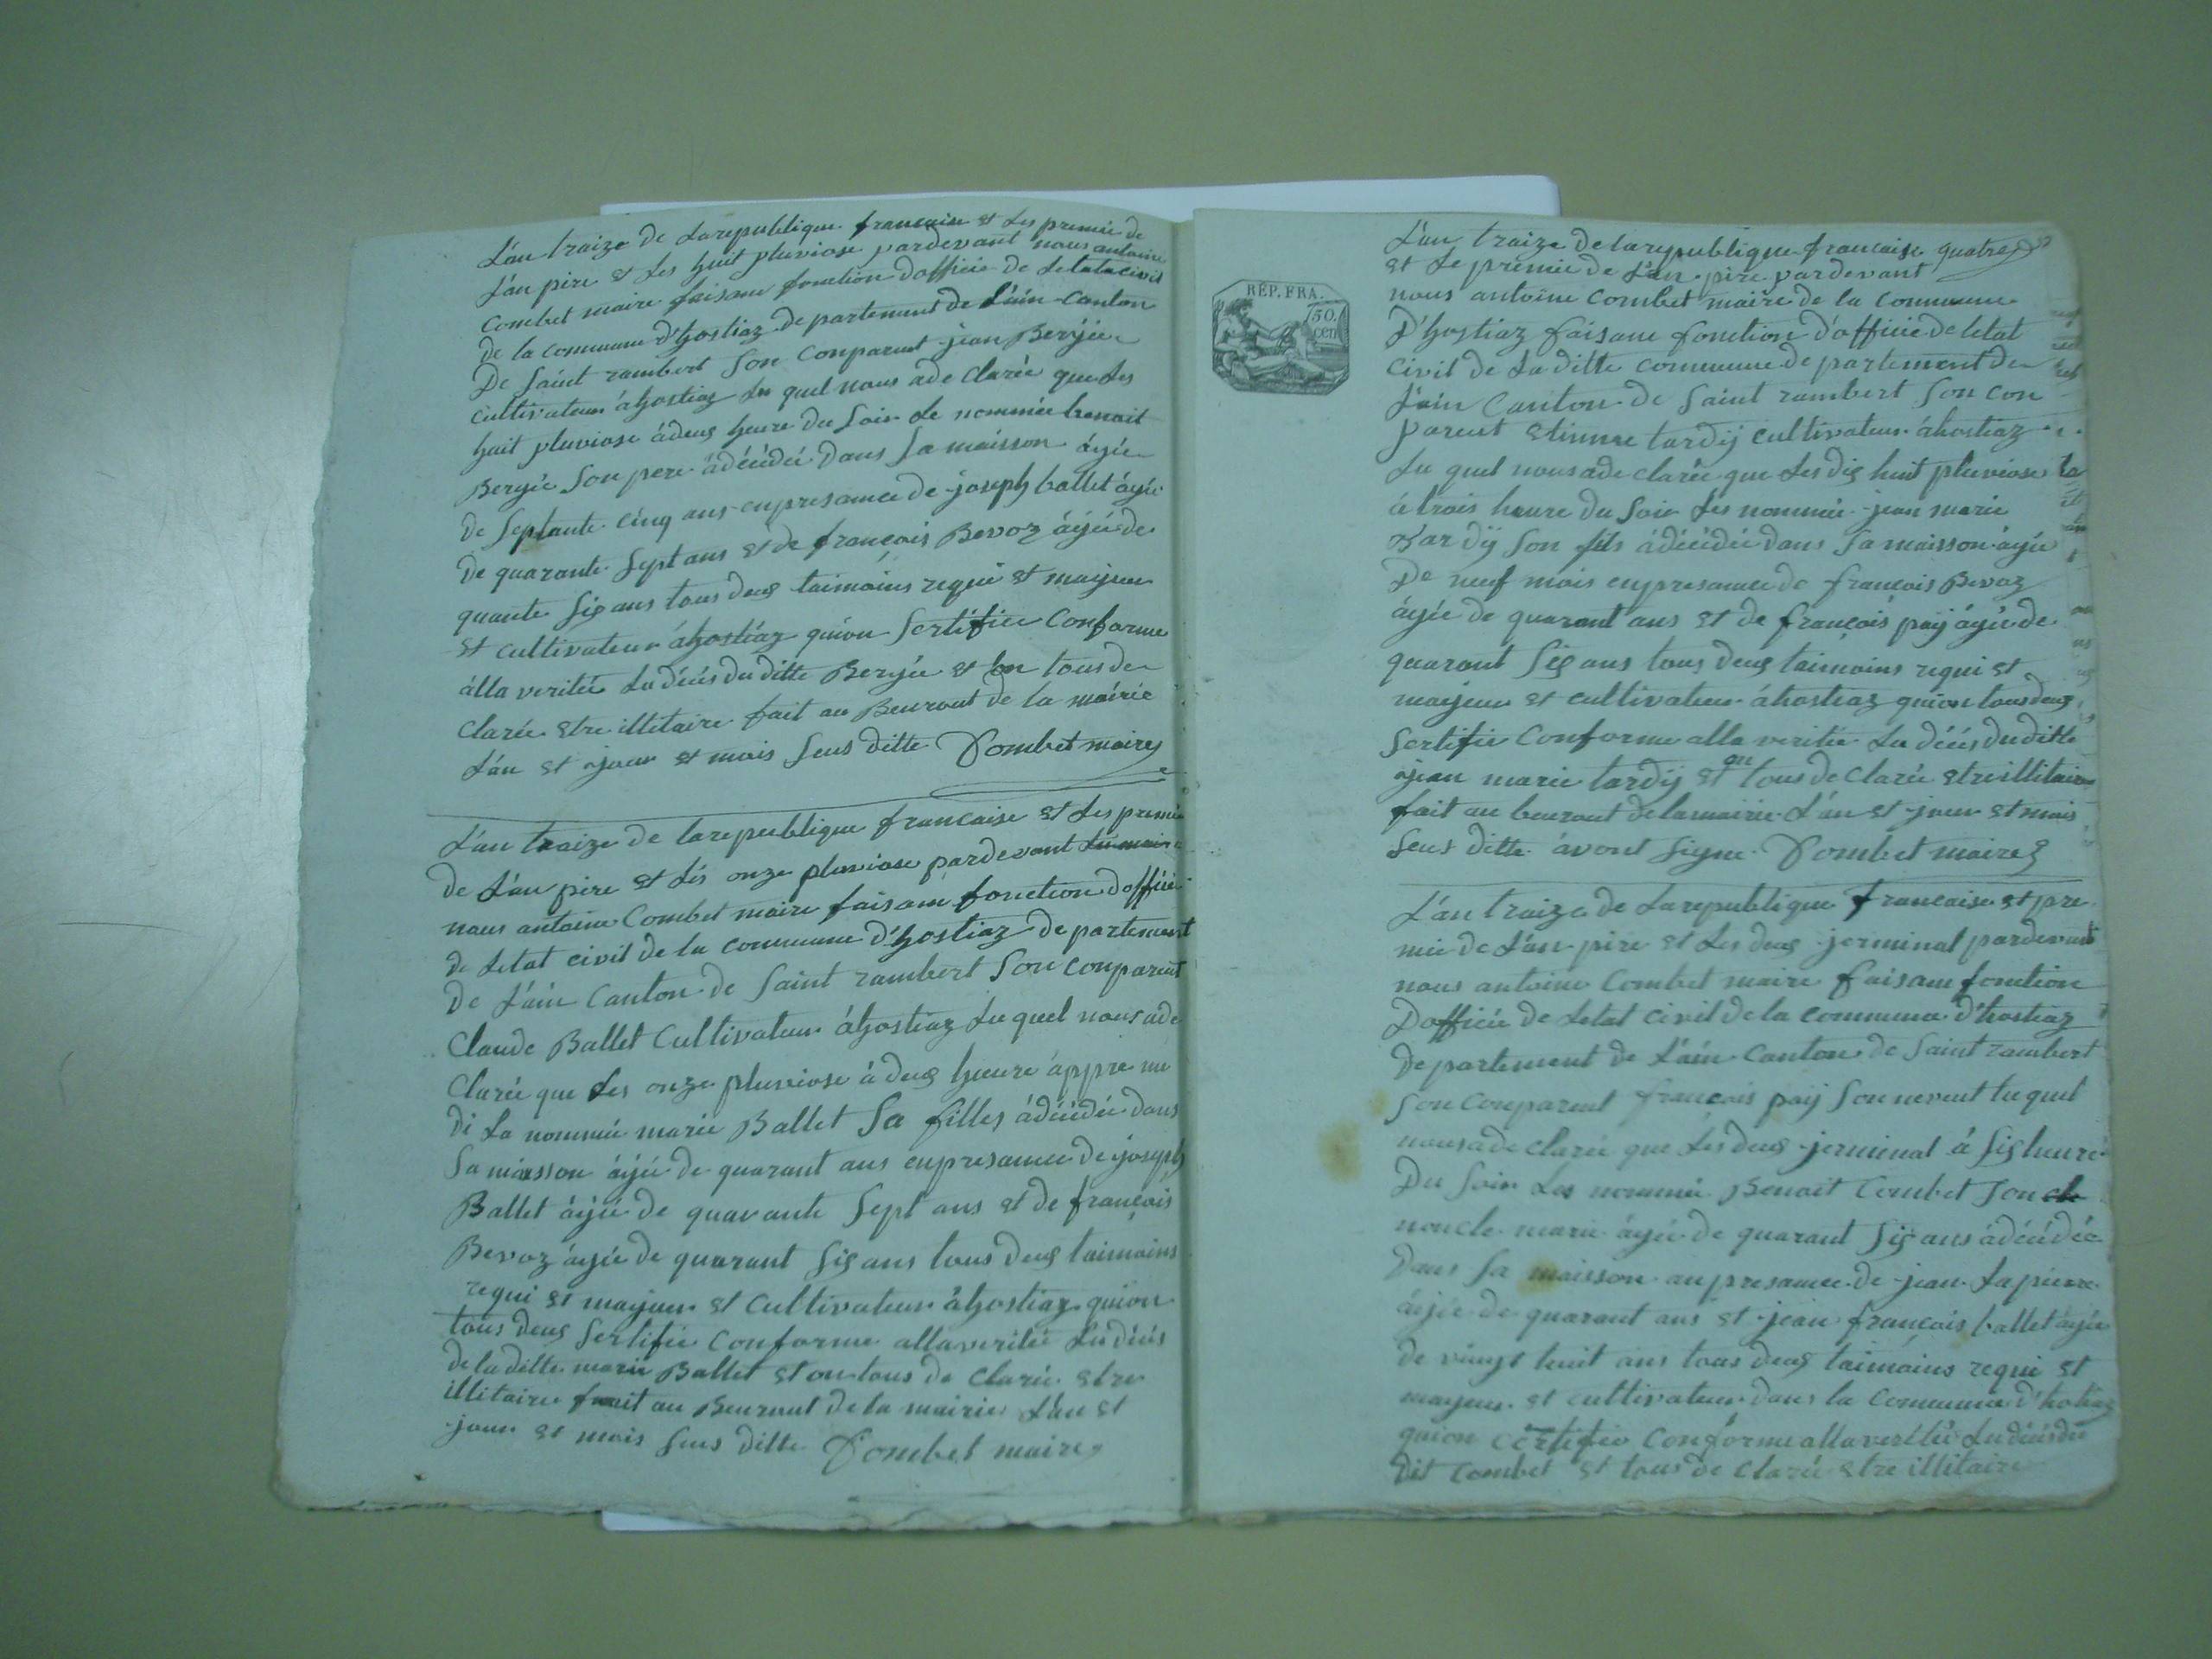 L'an traize de la republique francaise et les premie de
L'an pire et les huit pluviose pardevant nous antoine
Combet maire faisam fonction d'officie de letataciviel
de la commune d'hostiaz departement de L'ain Canton
De saint rambert son Conparut jean Bergie
cultivateur á hostiaz lu quel nous ade clarée que les
huit pluviose á deus heure du soir le nommée benoit
Bergie son pere ádécidée dans sa maisson áyie
de septante cinq ans enpresamce de joseph ballet áyie
de quarante sept ans et de francois Bevoz áyié de
quante sis ans tous deus taimoins requi et maijeur
et cultivateur áhostiaz quion sertifiée Conforme
álla veritée lu décés du ditte Bergie et on tous de
clarée etre illitaire fait au Beuraut de la mairie
L'an et jour et mois seus ditte Combet maire
L'an traize de la republique francaise et les premie
de L'an pire et lés onze pluviose pardevant
nous antoine Combet maire faisam fonction d'officié
de letat civil de la commune d'hostiaz departement
De L'ain Canton de saint rambert son conparut
Claude Ballet Cultivateur áhostiaz lu quel nous ade
Clarée que les onze pluviose á deus heure áppre mi
di la nommée marie Ballet sa filles ádécidée dans
sa miasson áijié de quarant ans enpresamce de joseph
Ballet áijié de quarante sept ans et de francois
Bevoz áyié de quarant sis ans tous deus taimoins
requi et maijeur et Cultivateur áhostiaz quion
tous deus sertifie Conforme alla veritée lu décés
de la ditte marie Ballet et on tous de clarée etre
illitaire fait au Beuraut de la mairie L'an et
jour et mois seus ditte Combet maire
REP. FRA.
50.
cen
L'an traize de la republique francaise quatre
et le premie de L'an pire pardevant
nous antoine Combet maire de la commune
D'hostiaz faisam fonction d'officie de letat
civil de la ditte commune departement de
L'ain Canton de saint rambert son con
parut etienne tardij cultivateur áhostiaz
lu quel nous ade clarée que les dis huit pluviose
á trois heure du soir les nommée jean marie
tardij son fils ádécidée dans sa maisson áyie
De neuf mois enpresamce de francois Bevoz
áyie de quarant ans et de francois paij áyié de
quarant sis ans tous deus taimoins requi et
maijeur et cultivateur áhostiaz quion tous deus
sertifie Conforme alla veritée lu décés du ditte
jean marie tardij et on tous de clarée etre illitaire
fait au beuraut de la mairie L'an et jour et mois
seus ditte ávont signe Combet maire
L'an traize de la republique francaise et pre
mie de L'an pire et les deus jerminal pardevant
nous antoine Combet maire faisam fonction
D'officie de letat civil de la commune d'hostiaz
departement de L'ain Canton de saint rambert
son conparut francois paij son neveut lu quel
nous ade clarée que les deus jerminal á sis heure
Du soir les nommée Benoit Combet son
noncle marie áyié de quarant sis ans ádécidée
Dans sa maisson anpresamce de jean lapierre
áijié de quarant ans et jean francois ballet áyie
de vingt huit ans tous deus taimoins requi et
maijeur et cultivateur dans la Commune d'hotiaz
quion certifie Conforme alla veritée lu décés du
dit Combet et tous de clarée etre illitaire